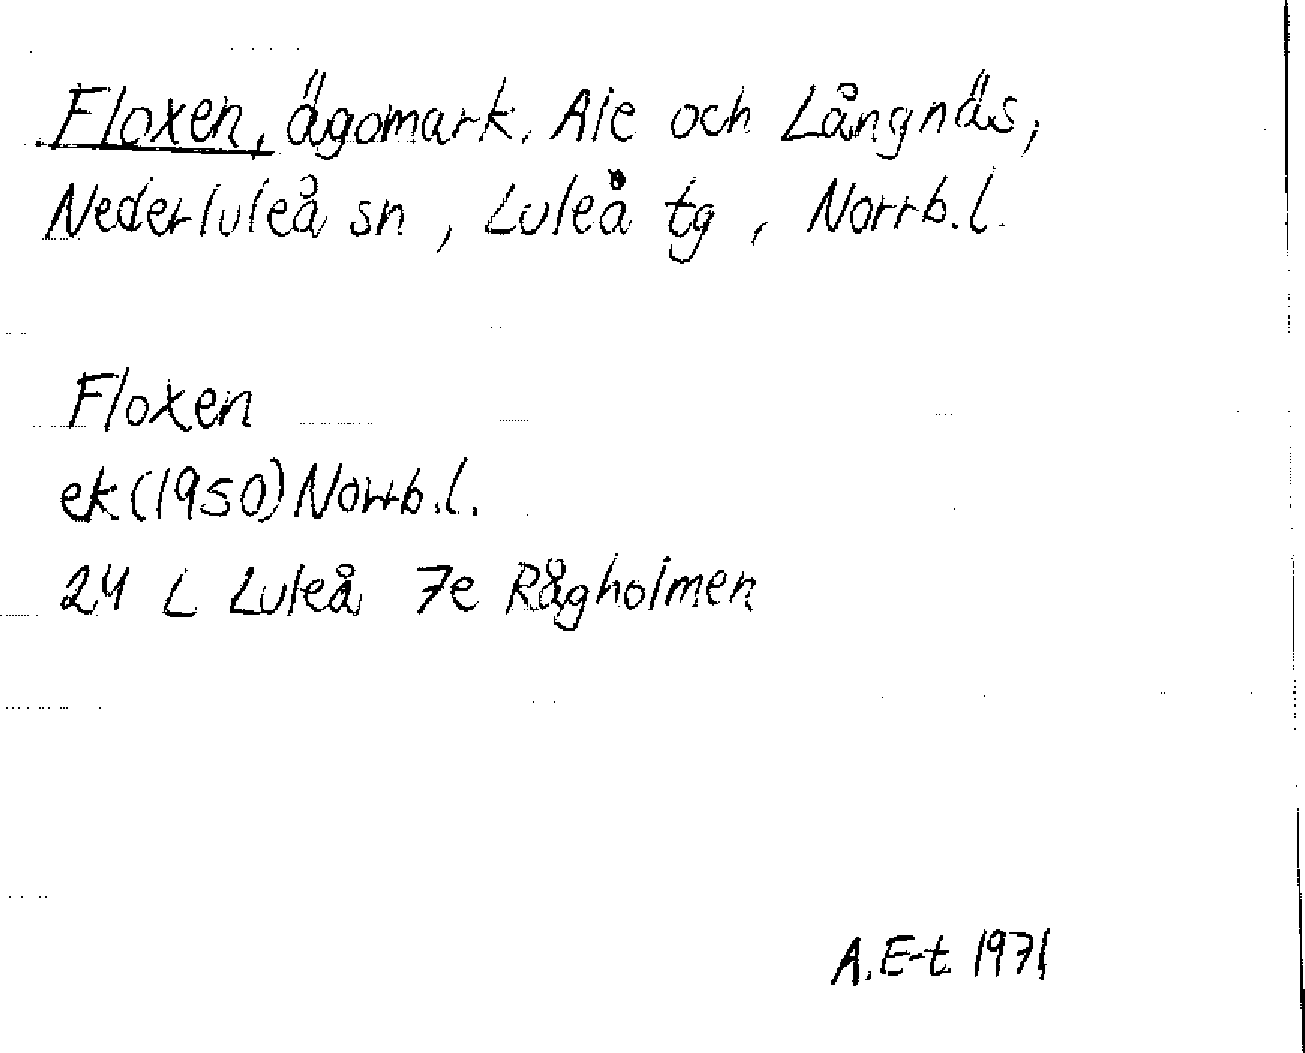 Floxen, ägomark, Ale och Långnäs,
Nederluleå sn, Luleå tg, Norrb.l.
Floxen
ek (1950) Norrb.l.
24 L Luleå 7e Rågholmen
A.E-t 1971